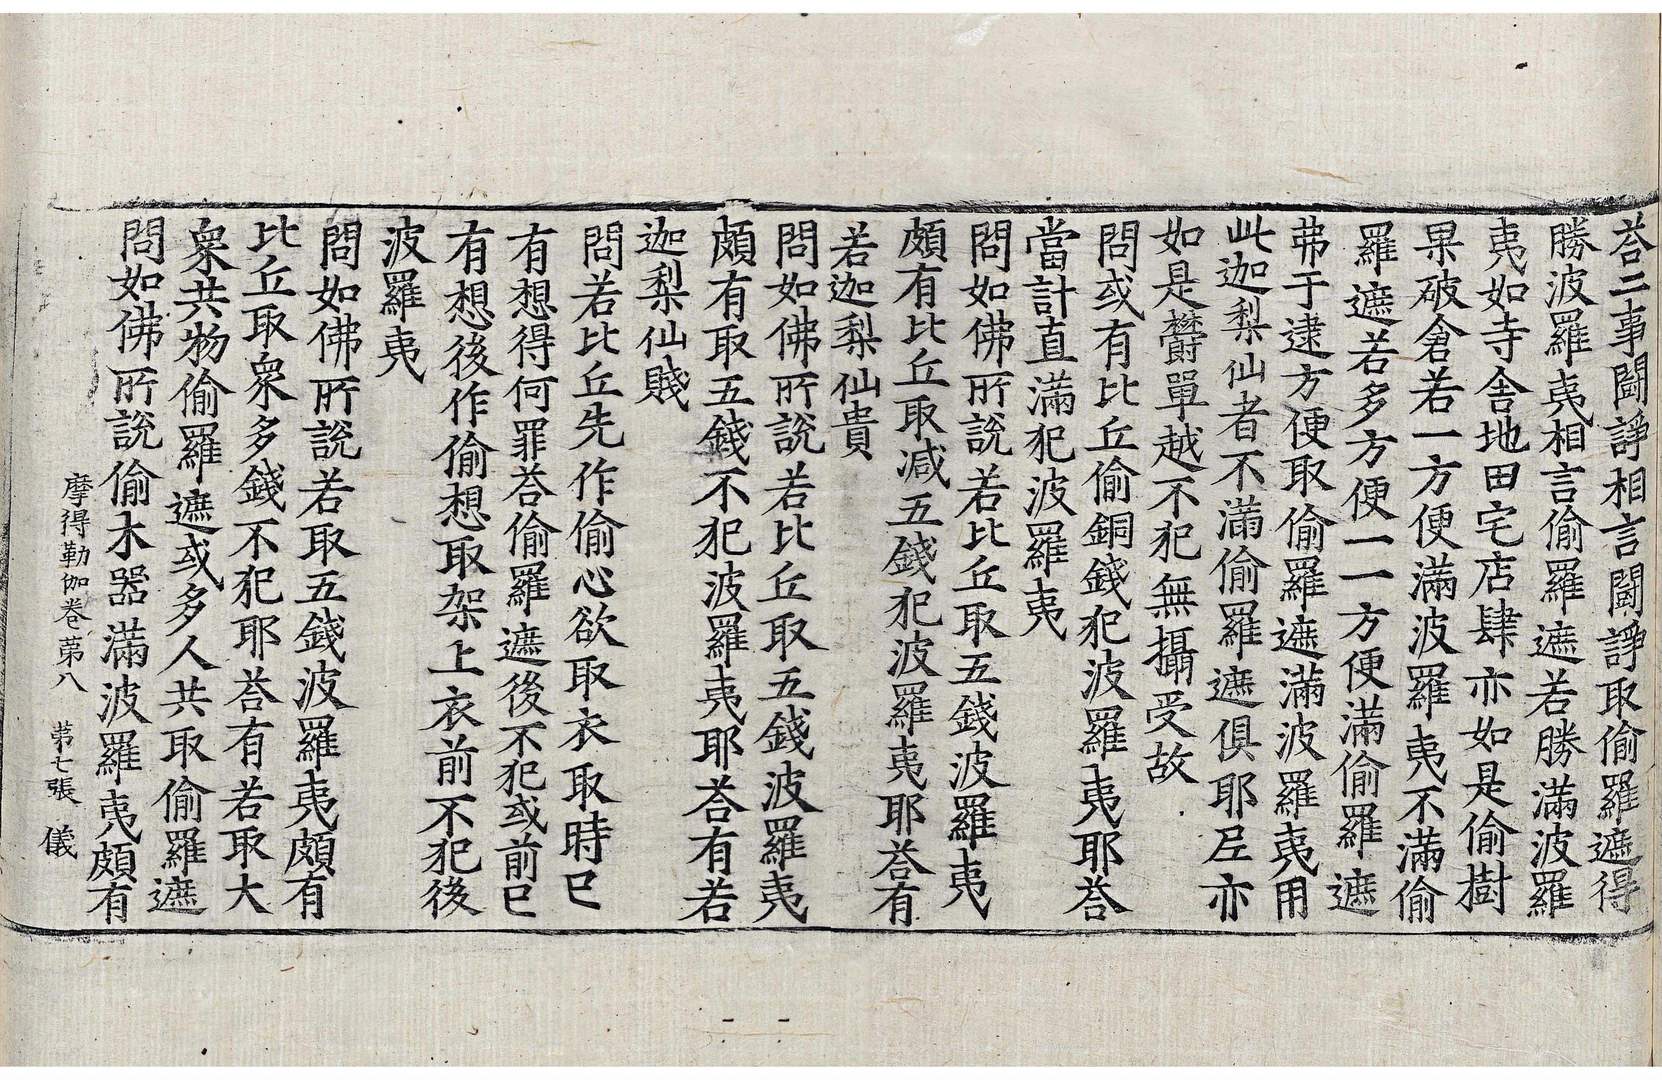 荅二事鬪諍相言鬪諍取偷羅遮得
勝波羅夷相言偷羅遮若勝滿波羅
夷如寺舍地田宅店肆亦如是偷樹
果破倉若一方便滿波羅夷不滿偷
羅遮若多方便一一方便滿偷羅遮
弗于逮方便取偷羅遮滿波羅夷用
此迦梨仙者不滿偷羅遮俱耶尼亦
如是欝單越不犯無攝受故
問或有比丘偷銅錢犯波羅夷耶荅
當計直滿犯波羅夷
問如佛所說若比丘取五錢波羅夷
頗有比丘取減五錢犯波羅夷耶荅有
若迦梨仙貴
問如佛所說若比丘取五錢波羅夷
頗有取五錢不犯波羅夷耶荅有若
迦梨仙賤
問若比丘先作偷心欲取衣取時已
有想得何罪荅偷羅遮後不犯或前已
有想後作偷想取架上衣前不犯後
波羅夷
問如佛所說若取五錢波羅夷頗有
比丘取衆多錢不犯耶荅有若取大
衆共物偷羅遮或多人共取偷羅遮
問如佛所說偷木器滿波羅夷頗有
摩得勒伽卷第八 第七張 儀